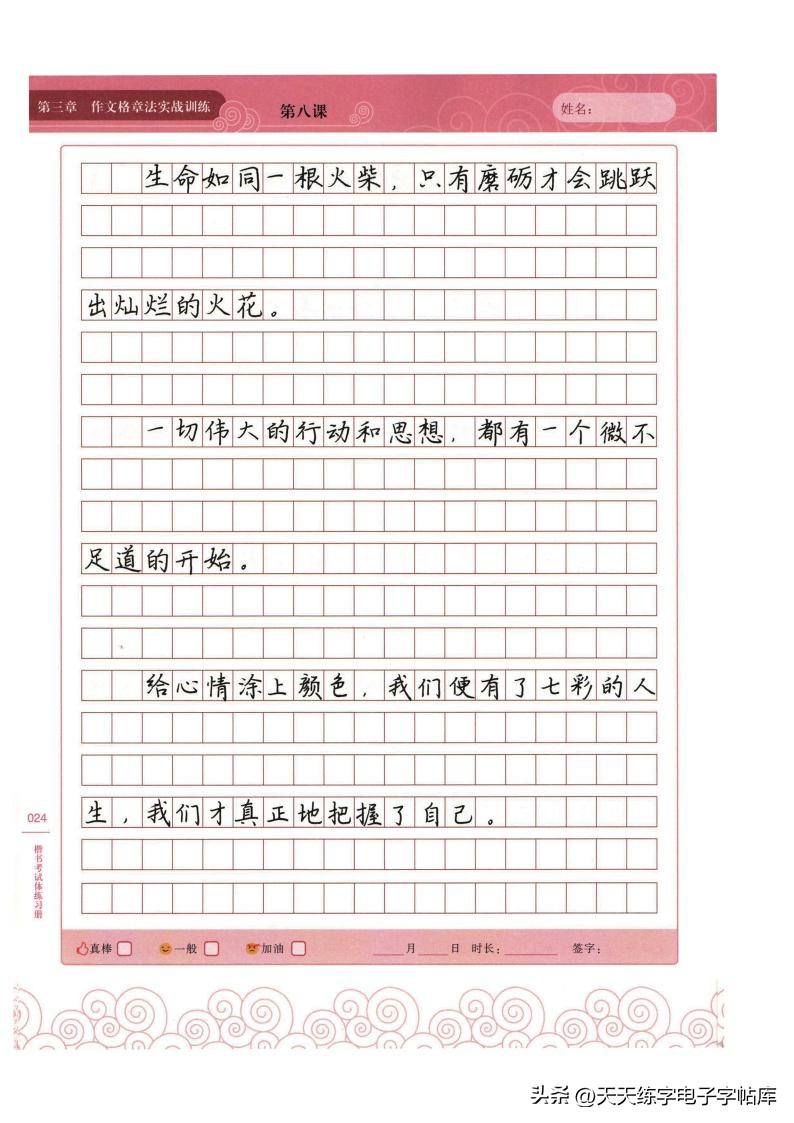 第三章 作文格章法实战训练
第八课
姓名：
生命如同一根火柴，只有磨砺才会跳跃
出灿烂的火花。
一切伟大的行动和思想，都有一个微不
足道的开始。
给心情涂上颜色，我们便有了七彩的人
生，我们才真正地把握了自己。
024
楷书考试体练习册
真棒 一般 加油 ____月____日 时长：________ 签字：
头条 @天天练字电子字帖库